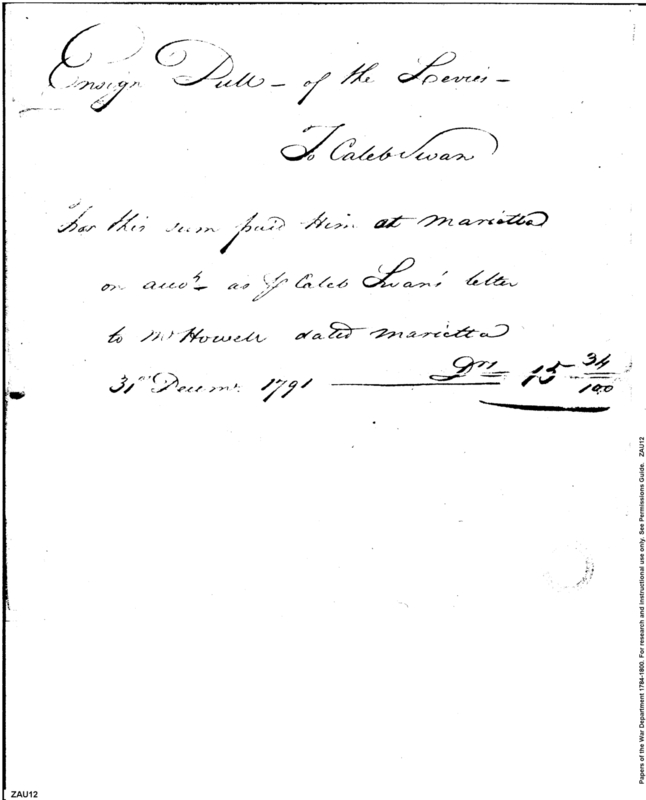 Ensign Pull - of the Levies -
To Caleb Swan
For this sum paid Him at Marietta
on acco.t as P Caleb Swan's letter
to Mr Howell dated Marietta
31st Decemr. 1791 Drs 15 34/100
Papers of the War Department 1784-1800. For research and instructional use only. See Permissions Guide. ZAU12
ZAU12